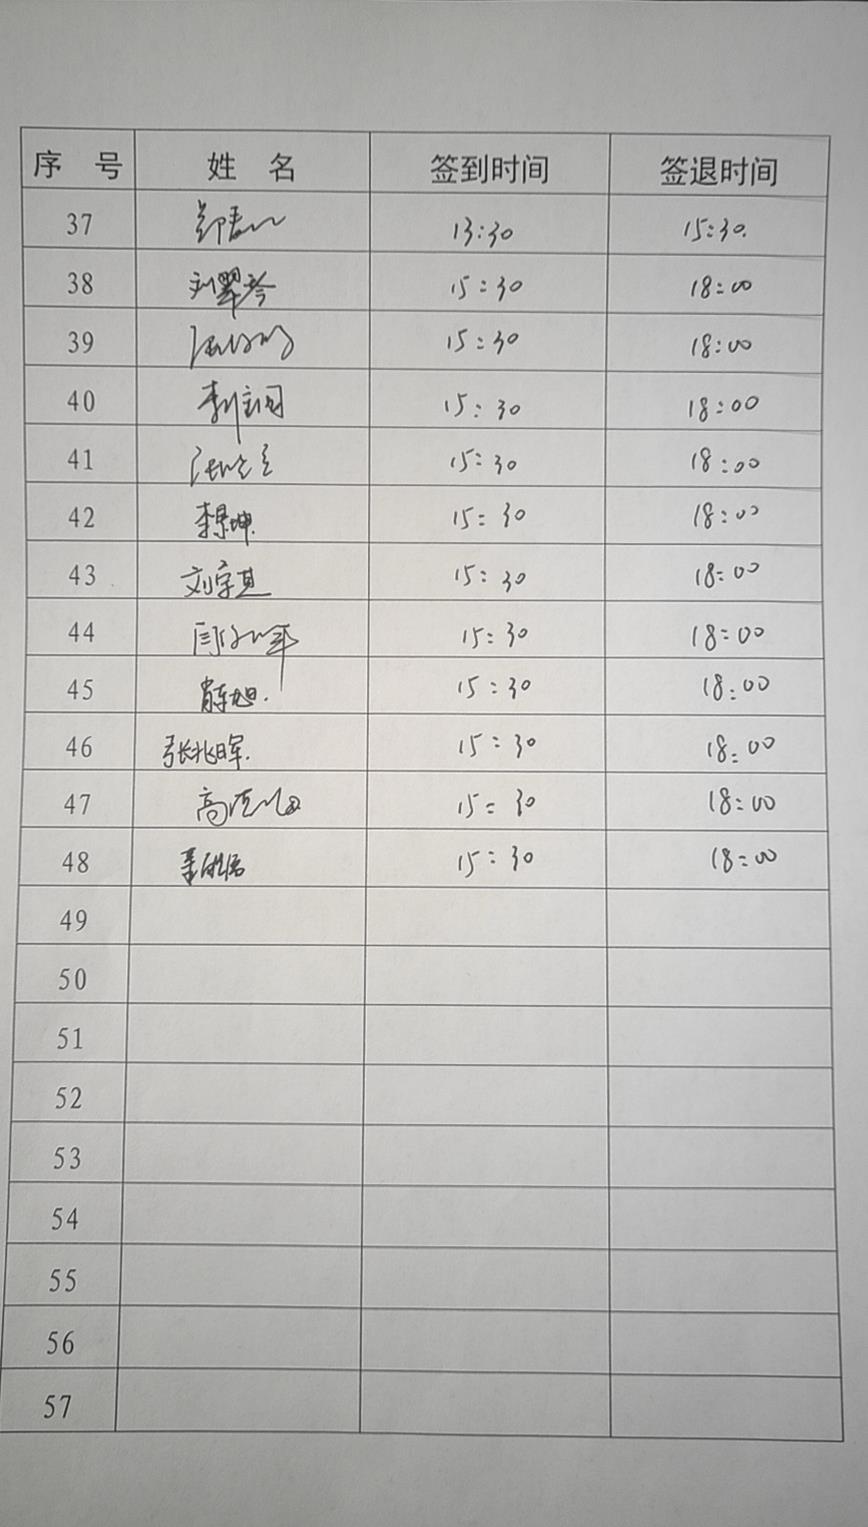 序 号 姓 名 签到时间 签退时间
37 13:30 15:30.
38 刘翠苓 15:30 18:00
39 15:30 18:00
40 15:30 18:00
41 15:30 18:00
42 李景坤 15:30 18:00
43 刘宗其 15:30 18:00
44 15:30 18:00
45 15:30 18:00
46 张兆晖. 15:30 18:00
47 高 15:30 18:00
48 15:30 18:00
49
50
51
52
53
54
55
56
57